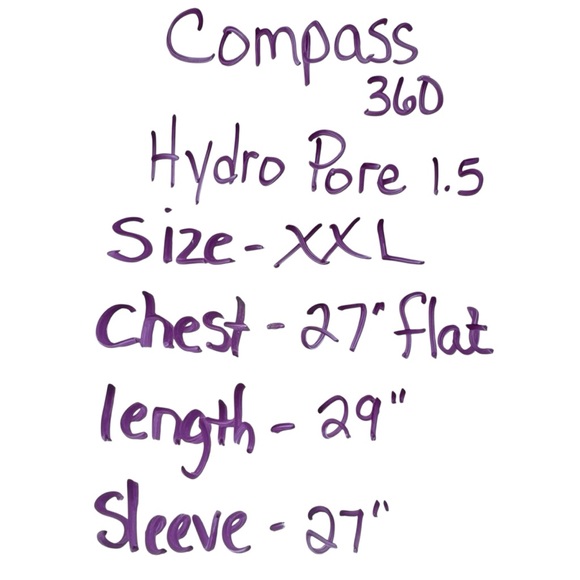 Compass
360
Hydro Pore 1.5
Size - XXL
Chest - 27" flat
length - 29"
Sleeve - 27"